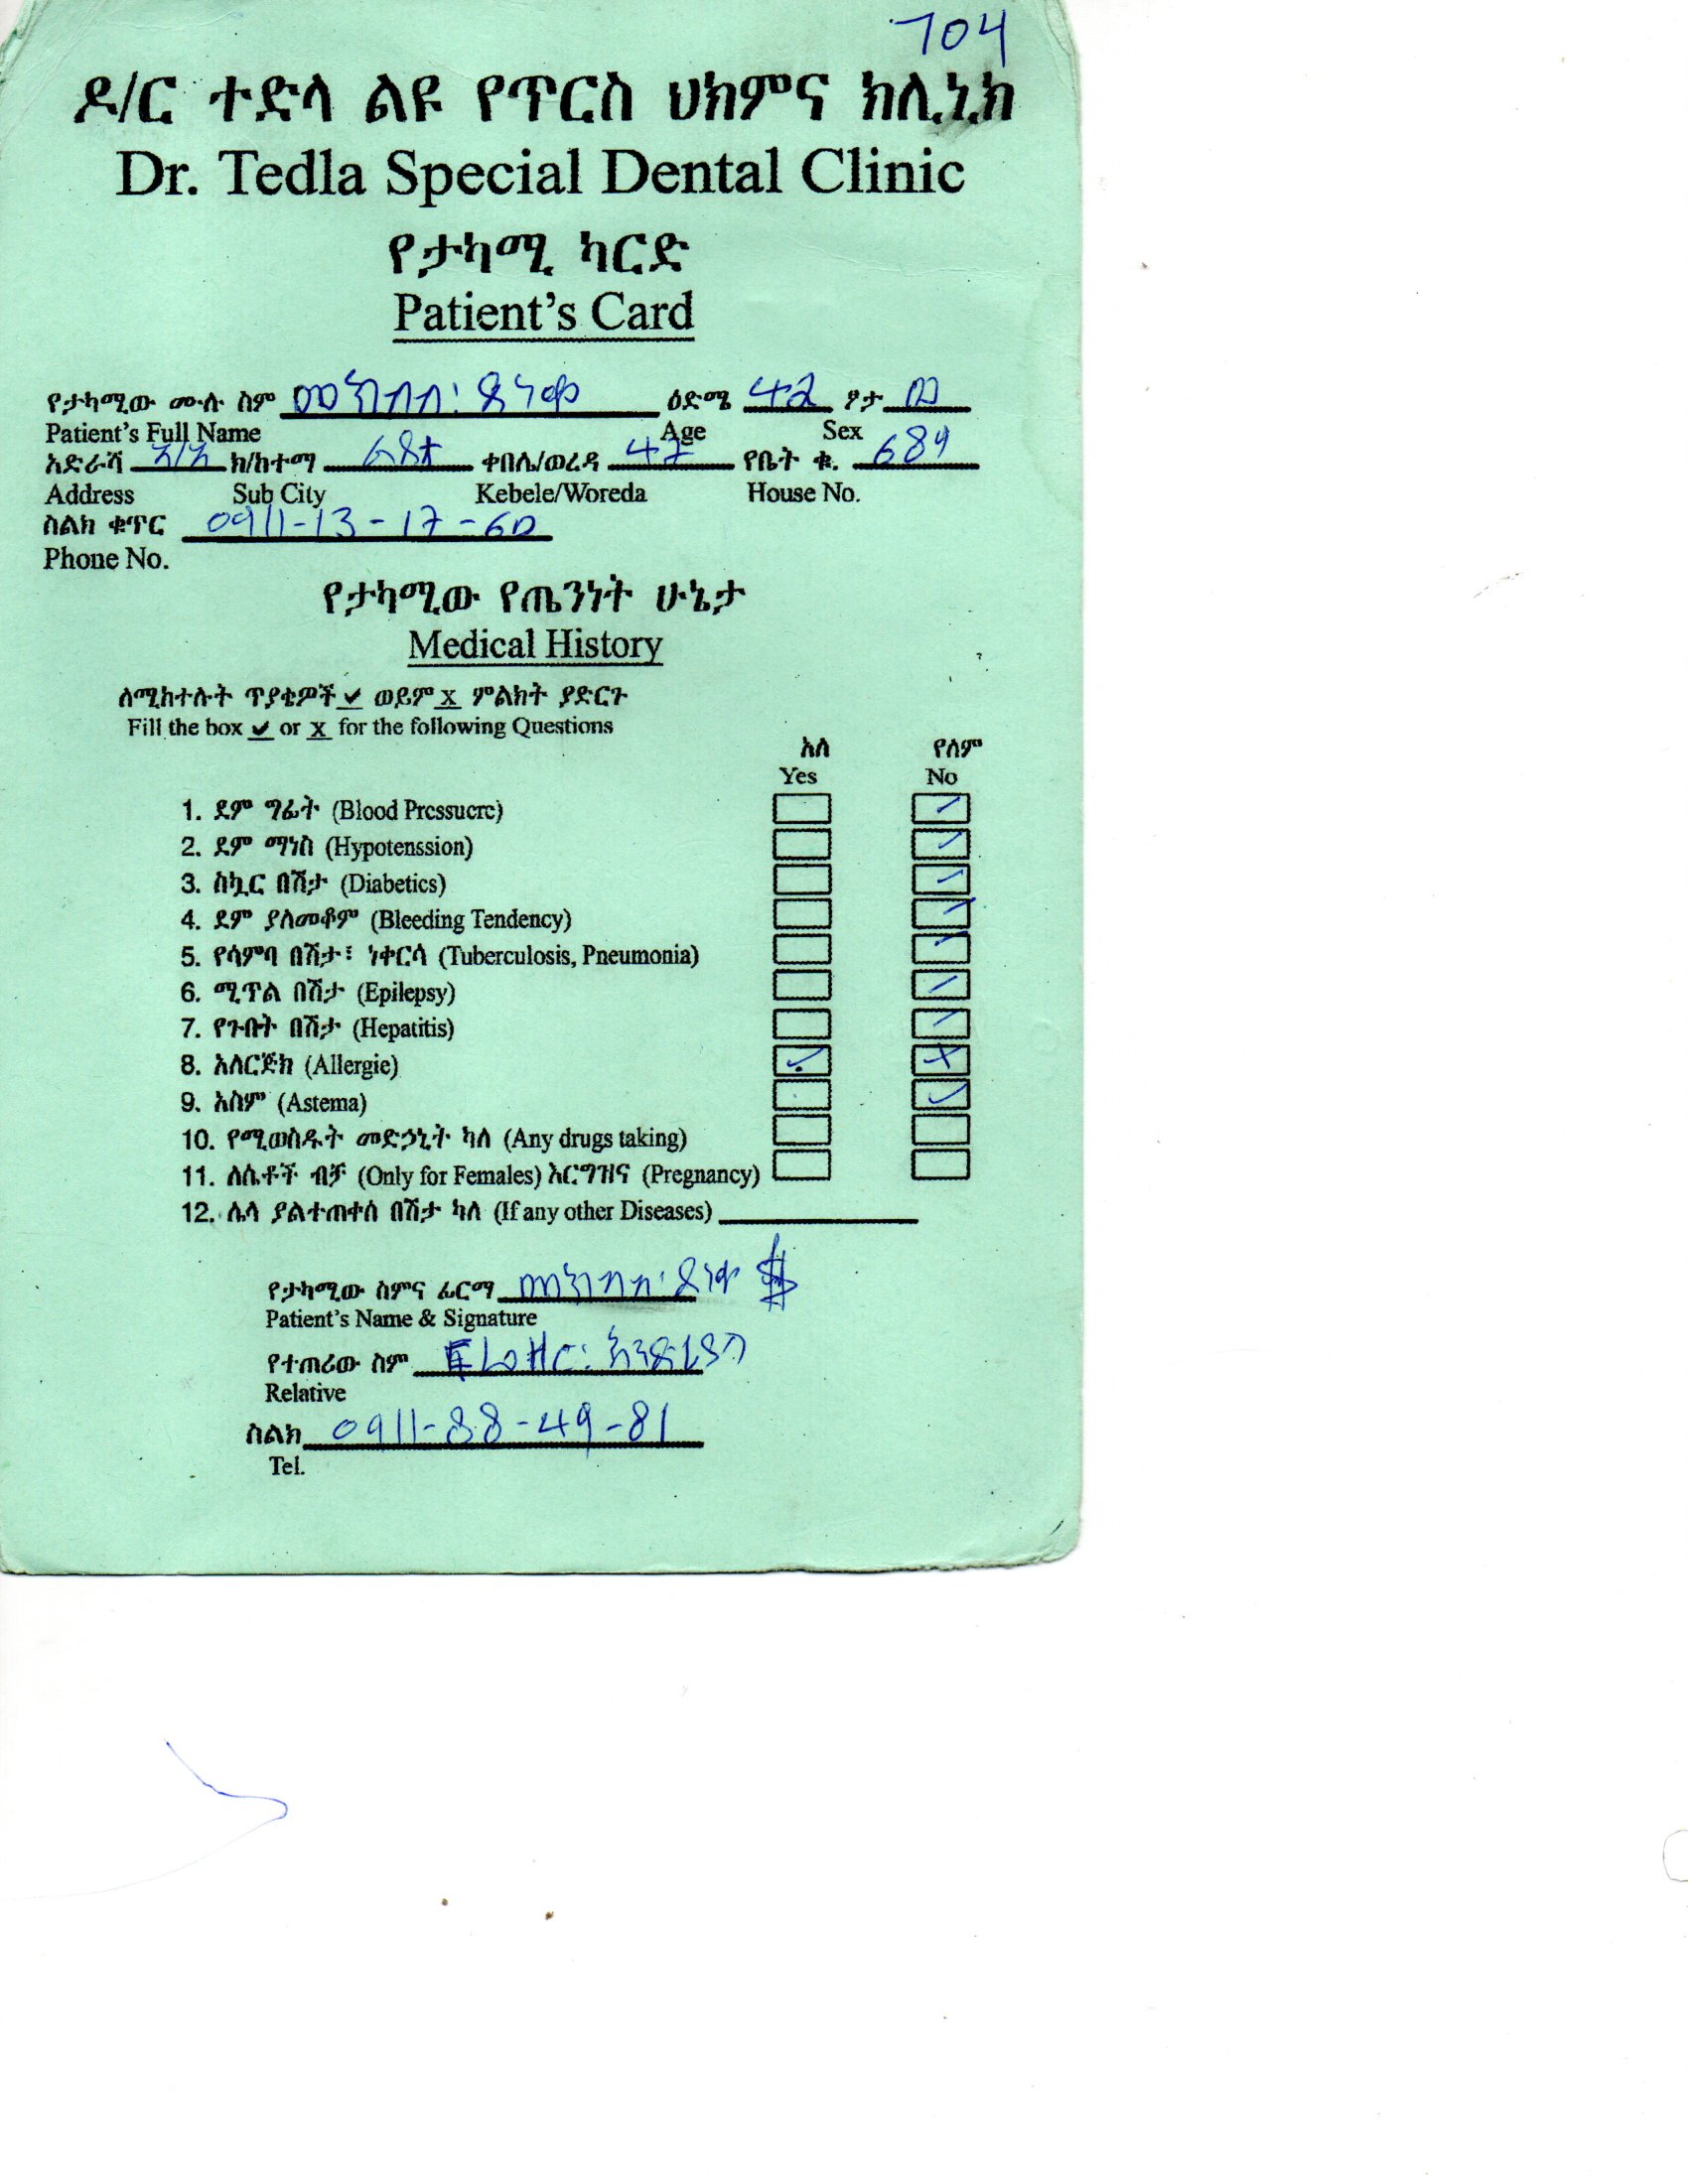 704
ዶ/ር ተድላ ልዩ የጥርስ ህክምና ክሊኒክ
Dr. Tedla Special Dental Clinic
የታካሚ ካርድ
Patient's Card
የታካሚው ሙሉ ስም ዕድሜ 42 ፆታ
Patient's Full Name Age Sex
አድራሻ አ/አ ክ/ከተማ ልደታ ቀበሌ/ወረዳ 47 የቤት ቁ. 689
Address Sub City Kebele/Woreda House No.
ስልክ ቁጥር 0911-13-17-60
Phone No.
የታካሚው የጤንነት ሁኔታ
Medical History
ለሚከተሉት ጥያቄዎች ✔ ወይም X ምልክት ያድርጉ
Fill the box ✔ or X for the following Questions
አለ የለም
Yes No
1. ደም ግፊት (Blood Pressucre) ✓
2. ደም ማነስ (Hypotenssion) ✓
3. ስኳር በሽታ (Diabetics) ✓
4. ደም ያለመቆም (Bleeding Tendency) ✓
5. የሳምባ በሽታ፣ ነቀርሳ (Tuberculosis, Pneumonia) ✓
6. ሚጥል በሽታ (Epilepsy) ✓
7. የጉበት በሽታ (Hepatitis) ✓
8. አለርጅክ (Allergie) ✓ X
9. አስም (Astema) ✓
10. የሚወስዱት መድኃኒት ካለ (Any drugs taking)
11. ለሴቶች ብቻ (Only for Females) እርግዝና (Pregnancy)
12. ሌላ ያልተጠቀሰ በሽታ ካለ (If any other Diseases)
የታካሚው ስምና ፊርማ
Patient's Name & Signature
የተጠሪው ስም
Relative
ስልክ 0911-88-49-81
Tel.